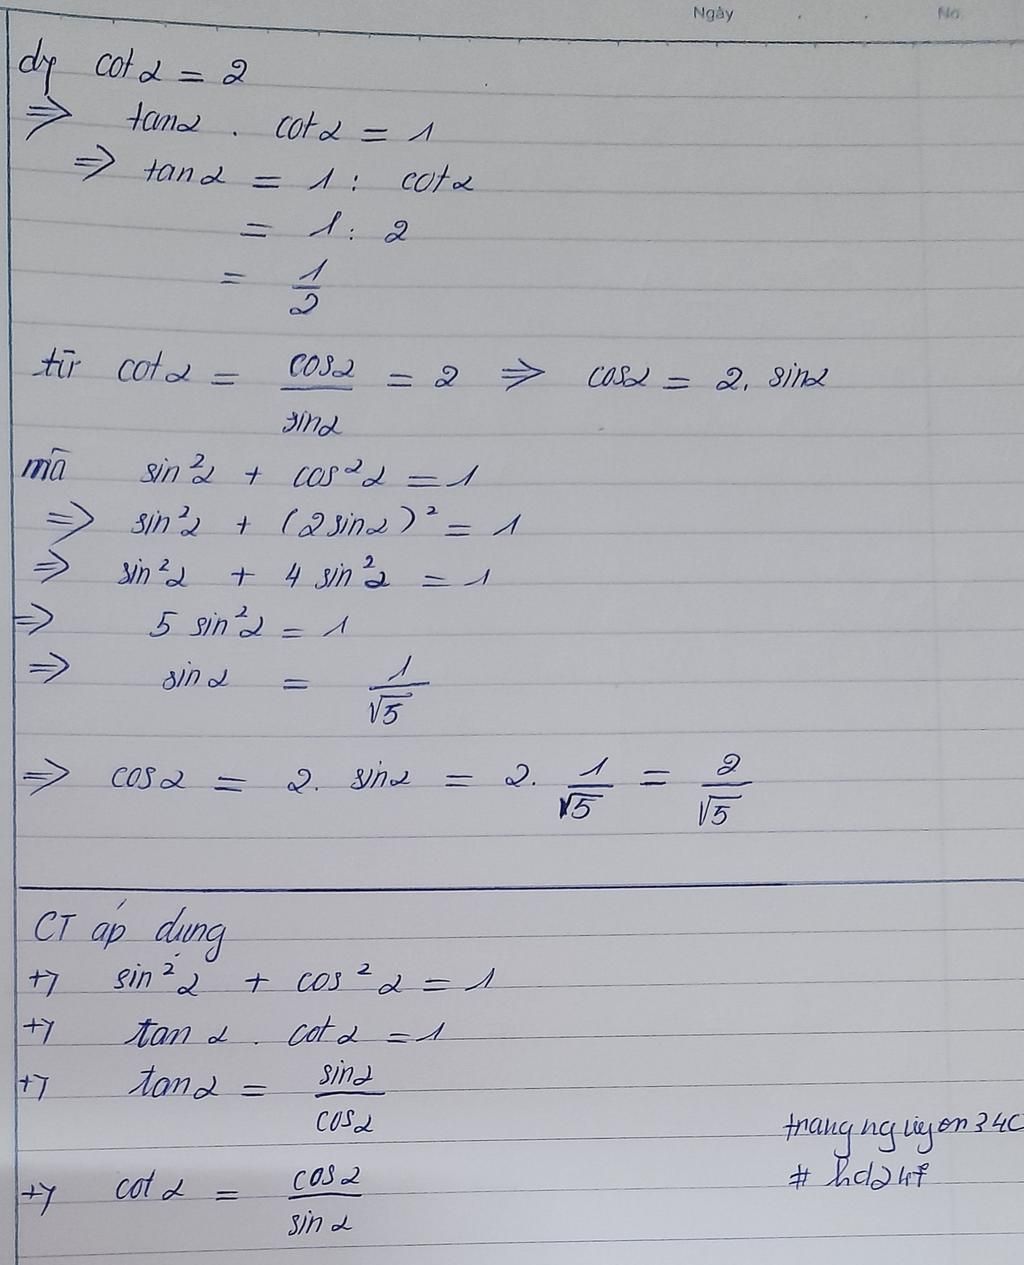 Ngày . . No.
d, cot α = 2
⇒ tan α . cot α = 1
⇒ tan α = 1 : cot α
= 1 : 2
= 1/2
từ cot α = cos α / sin α = 2 ⇒ cos α = 2. sin α
mà sin²α + cos²α = 1
⇒ sin²α + (2 sin α)² = 1
⇒ sin²α + 4 sin²α = 1
⇒ 5 sin²α = 1
⇒ sin α = 1/√5
⇒ cos α = 2. sin α = 2. 1/√5 = 2/√5
CT áp dụng
+, sin²α + cos²α = 1
+, tan α . cot α = 1
+, tan α = sin α / cos α
trangnguyen34c
+, cot α = cos α / sin α
# hd247